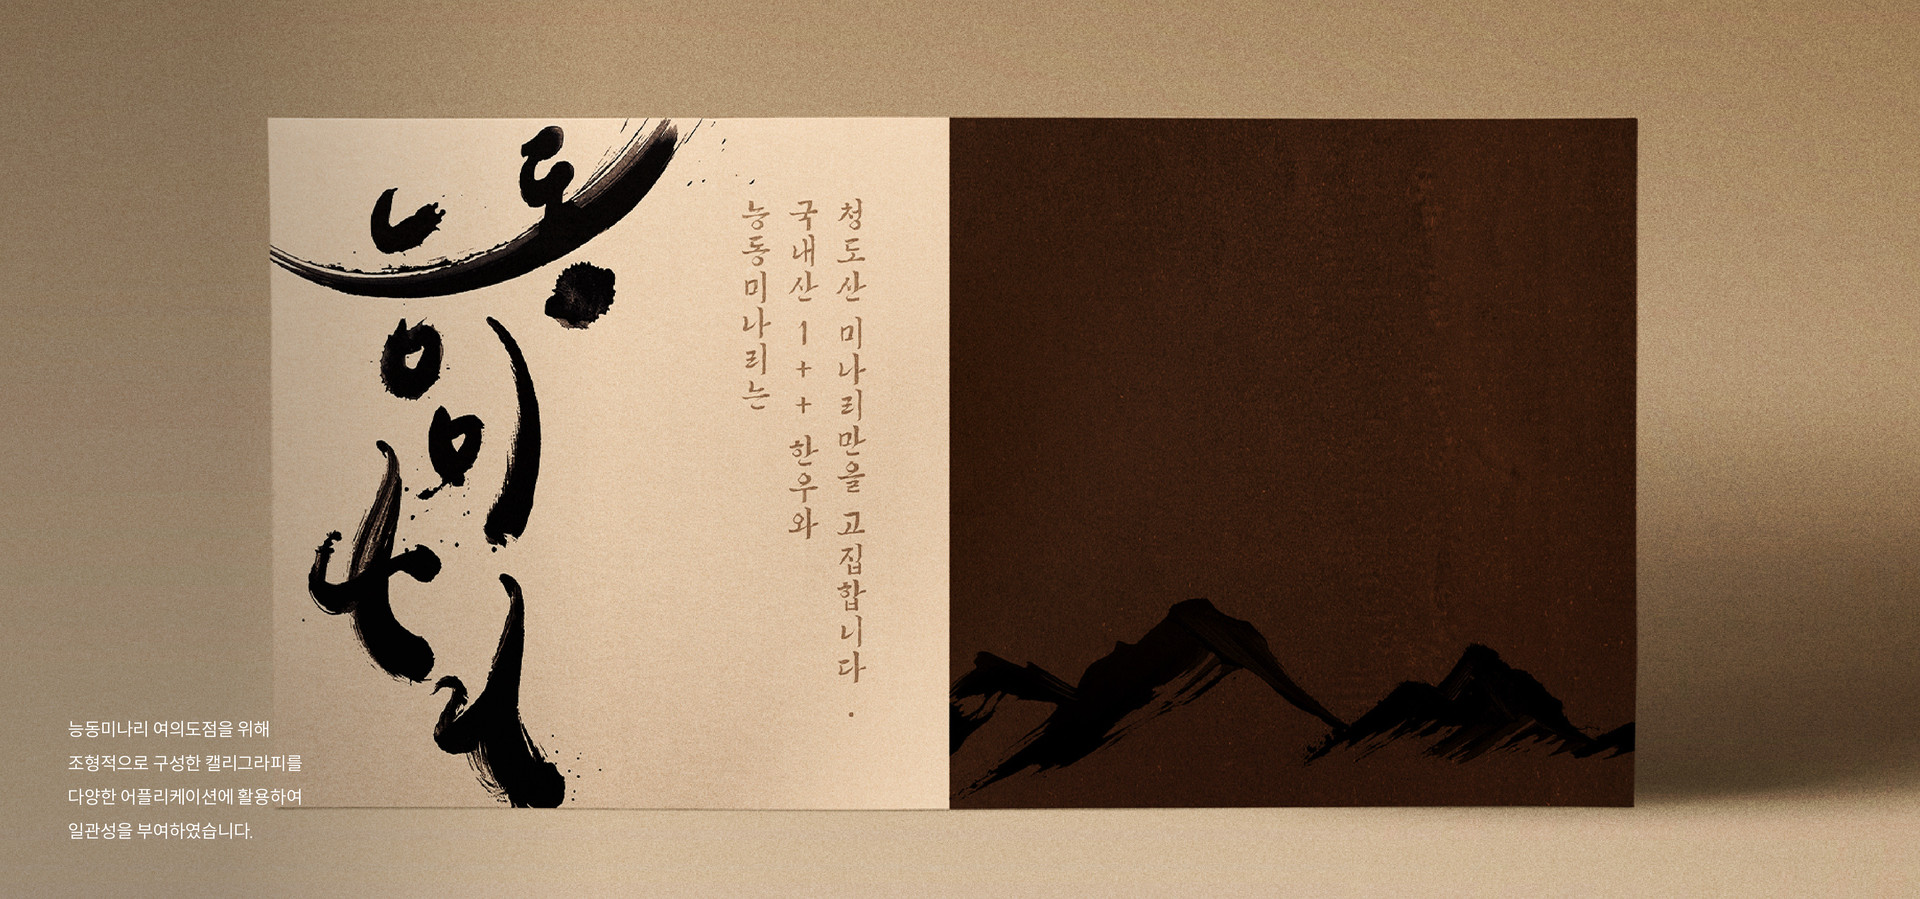 능동미나리
능동미나리는
국내산 1++ 한우와
청도산 미나리만을 고집합니다.
능동미나리 여의도점을 위해
조형적으로 구성한 캘리그라피를
다양한 어플리케이션에 활용하여
일관성을 부여하였습니다.